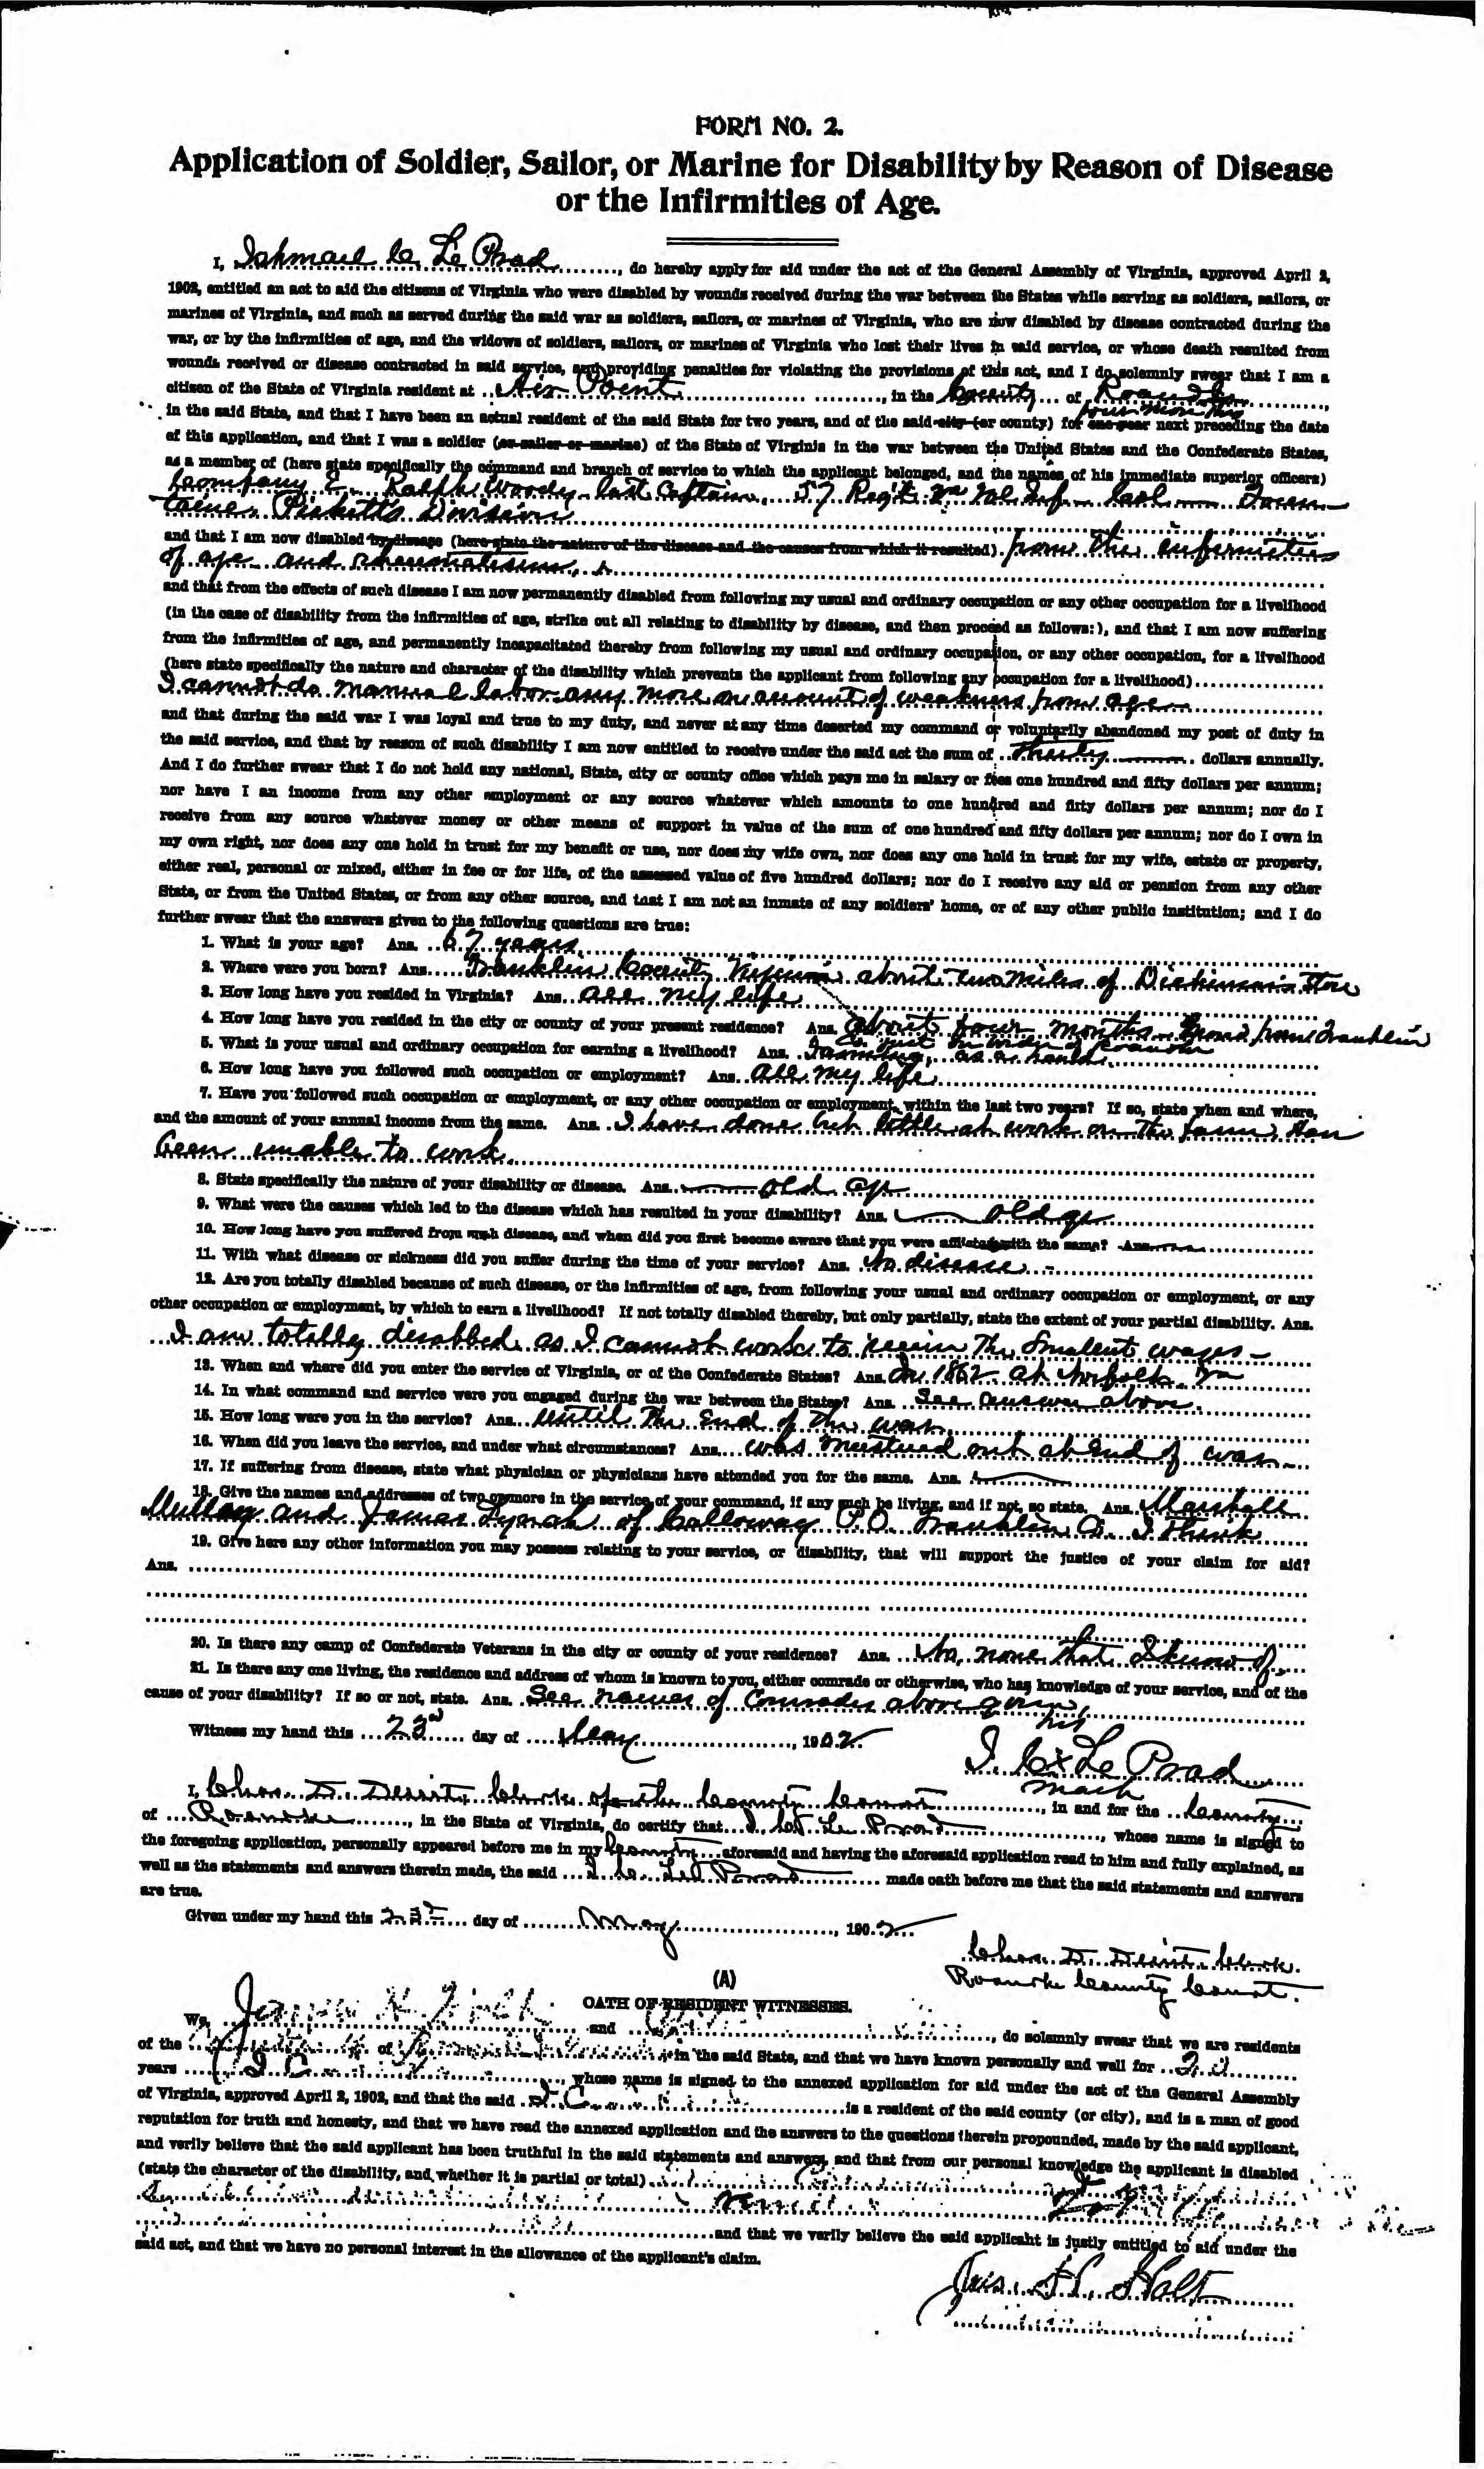 FORM NO. 2.
Application of Soldier, Sailor, or Marine for Disability by Reason of Disease
or the Infirmities of Age.
I, Ishmael C. Le Prad, do hereby apply for aid under the act of the General Assembly of Virginia, approved April 2,
1902, entitled an act to aid the citizens of Virginia who were disabled by wounds received during the war between the States while serving as soldiers, sailors, or
marines of Virginia, and such as served during the said war as soldiers, sailors, or marines of Virginia, who are now disabled by disease contracted during the
war, or by the infirmities of age, and the widows of soldiers, sailors, or marines of Virginia who lost their lives in said service, or whose death resulted from
wounds received or disease contracted in said service, and providing penalties for violating the provisions of this act, and I do solemnly swear that I am a
citizen of the State of Virginia resident at Air Point, in the County of Roanoke
four months
in the said State, and that I have been an actual resident of the said State for two years, and of the said city (or county) for one year next preceding the date
of this application, and that I was a soldier (or sailor or marine) of the State of Virginia in the war between the United States and the Confederate States,
as a member of (here state specifically the command and branch of service to which the applicant belonged, and the names of his immediate superior officers)
Company E. Ralph Woody last Captain, 57 Reg't Va Vol Inf. Col Foun-
taine, Picketts Division
and that I am now disabled by disease (here state the nature of the disease and the causes from which it resulted). from the infirmities
of age and rheumatism,
and that from the effects of such disease I am now permanently disabled from following my usual and ordinary occupation or any other occupation for a livelihood
(in the case of disability from the infirmities of age, strike out all relating to disability by disease, and then proceed as follows:), and that I am now suffering
from the infirmities of age, and permanently incapacitated thereby from following my usual and ordinary occupation, or any other occupation, for a livelihood
(here state specifically the nature and character of the disability which prevents the applicant from following any occupation for a livelihood)
I cannot do manual labor any more on account of weakness from age
and that during the said war I was loyal and true to my duty, and never at any time deserted my command or voluntarily abandoned my post of duty in
the said service, and that by reason of such disability I am now entitled to receive under the said act the sum of Thirty dollars annually.
And I do further swear that I do not hold any national, State, city or county office which pays me in salary or fees one hundred and fifty dollars per annum;
nor have I an income from any other employment or any source whatever which amounts to one hundred and fifty dollars per annum; nor do I
receive from any source whatever money or other means of support in value of the sum of one hundred and fifty dollars per annum; nor do I own in
my own right, nor does any one hold in trust for my benefit or use, nor does my wife own, nor does any one hold in trust for my wife, estate or property,
either real, personal or mixed, either in fee or for life, of the assessed value of five hundred dollars; nor do I receive any aid or pension from any other
State, or from the United States, or from any other source, and that I am not an inmate of any soldiers' home, or of any other public institution; and I do
further swear that the answers given to the following questions are true:
1. What is your age? Ans. 67 years
2. Where were you born? Ans. Franklin County Virginia about two miles of Dickinson's Store
3. How long have you resided in Virginia? Ans. all my life
4. How long have you resided in the city or county of your present residence? Ans. About four months from Franklin
Co. Roanoke
5. What is your usual and ordinary occupation for earning a livelihood? Ans. Farming, as a hand.
6. How long have you followed such occupation or employment? Ans. All my life
7. Have you followed such occupation or employment, or any other occupation or employment, within the last two years? If so, state when and where,
and the amount of your annual income from the same. Ans. I have done but little at work on the farm, Hav
been unable to work.
8. State specifically the nature of your disability or disease. Ans. old age
9. What were the causes which led to the disease which has resulted in your disability? Ans. old age
10. How long have you suffered from such disease, and when did you first become aware that you were afflicted with the same? Ans.
11. With what disease or sickness did you suffer during the time of your service? Ans. No disease
12. Are you totally disabled because of such disease, or the infirmities of age, from following your usual and ordinary occupation or employment, or any
other occupation or employment, by which to earn a livelihood? If not totally disabled thereby, but only partially, state the extent of your partial disability. Ans.
I am totally disabled as I cannot work to receive the Smalest wages
13. When and where did you enter the service of Virginia, or of the Confederate States? Ans. In 1862 at Norfolk Va
14. In what command and service were you engaged during the war between the States? Ans. See answer above.
15. How long were you in the service? Ans. Until the End of the war
16. When did you leave the service, and under what circumstances? Ans. was mustered out at End of war
17. If suffering from disease, state what physician or physicians have attended you for the same. Ans.
18. Give the names and addresses of two or more in the service of your command, if any such be living, and if not, so state. Ans. Marshall
and James of Calloway P.O. Franklin Co. I think
19. Give here any other information you may possess relating to your service, or disability, that will support the justice of your claim for aid?
Ans.
20. Is there any camp of Confederate Veterans in the city or county of your residence? Ans. No, none that I know of.
21. Is there any one living, the residence and address of whom is known to you, either comrade or otherwise, who has knowledge of your service, and of the
cause of your disability? If so or not, state. Ans. See names of Comrades above given,
his
Witness my hand this 23rd day of May, 1902
I. C x Le Prad
mark
I, Chas. D. Denit Clerk of the County Court, in and for the County
of Roanoke, in the State of Virginia, do certify that I. C. Le Prad, whose name is signed to
the foregoing application, personally appeared before me in my County aforesaid and having the aforesaid application read to him and fully explained, as
well as the statements and answers therein made, the said I. C. Le Prad made oath before me that the said statements and answers
are true.
Given under my hand this 23d day of May, 1902
Chas. D. Denit Clerk.
Roanoke County Court.
(A)
OATH OF RESIDENT WITNESSES.
We, James H. Holt and, do solemnly swear that we are residents
of the of in the said State, and that we have known personally and well for 20
years I. C., whose name is signed to the annexed application for aid under the act of the General Assembly
of Virginia, approved April 2, 1902, and that the said I. C. is a resident of the said county (or city), and is a man of good
reputation for truth and honesty, and that we have read the annexed application and the answers to the questions therein propounded, made by the said applicant,
and verily believe that the said applicant has been truthful in the said statements and answers, and that from our personal knowledge the applicant is disabled
(state the character of the disability, and whether it is partial or total)
and that we verily believe the said applicant is justly entitled to aid under the
said act, and that we have no personal interest in the allowance of the applicant's claim.
Jas. H. Holt